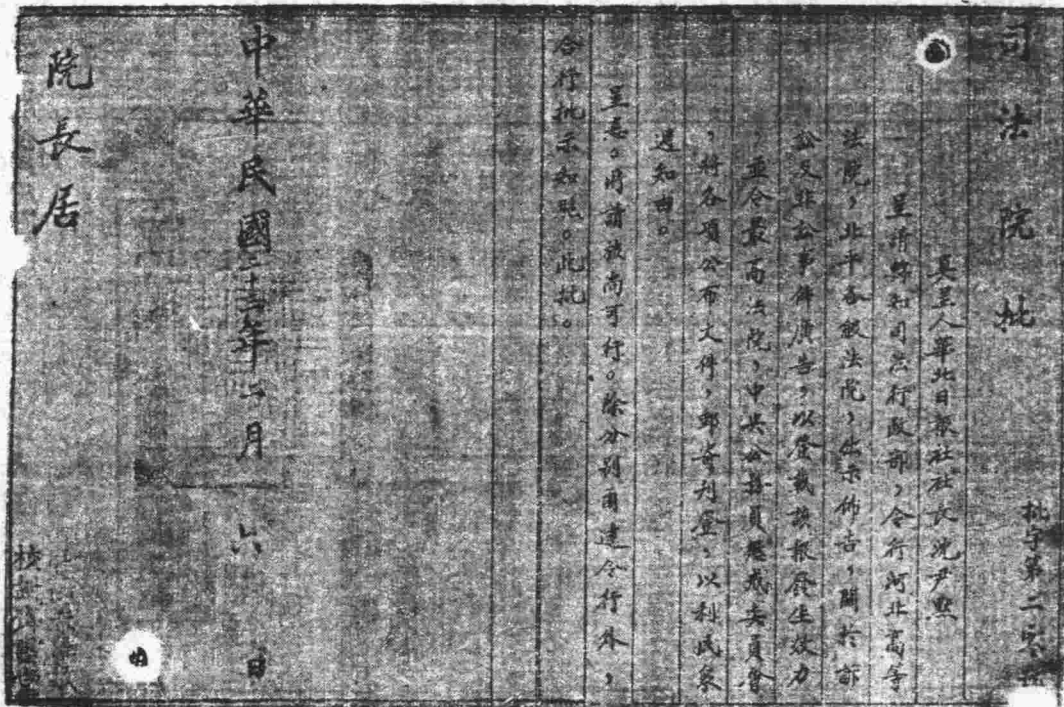 司法院批
批字第二
具呈人華北日報社社長沈尹默
一 呈請轉知司法行政部，令行河北高等
法院，北平各級法院，出示佈告，關於訴
訟及非訟事件廣告，以登載該報發生效力
，並令最高法院，中央公務員懲戒委員會
，將各項公布文件，郵寄刊登，以利民眾
週知由。
呈悉。所請尚可行。除分別函達令行外，
合行批示知照。此批。
中華民國二十年二月 六 日
院長居